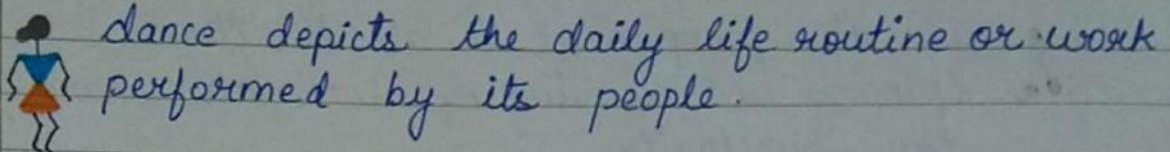 dance depicts the daily life routine or work
performed by its people.